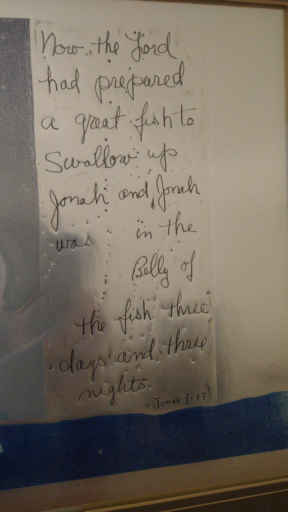 Now, the Lord
had prepared
a great fish to
Swallow up
Jonah and Jonah
was in the
Belly of
the fish three
days and three
nights.
Jonah 1:17